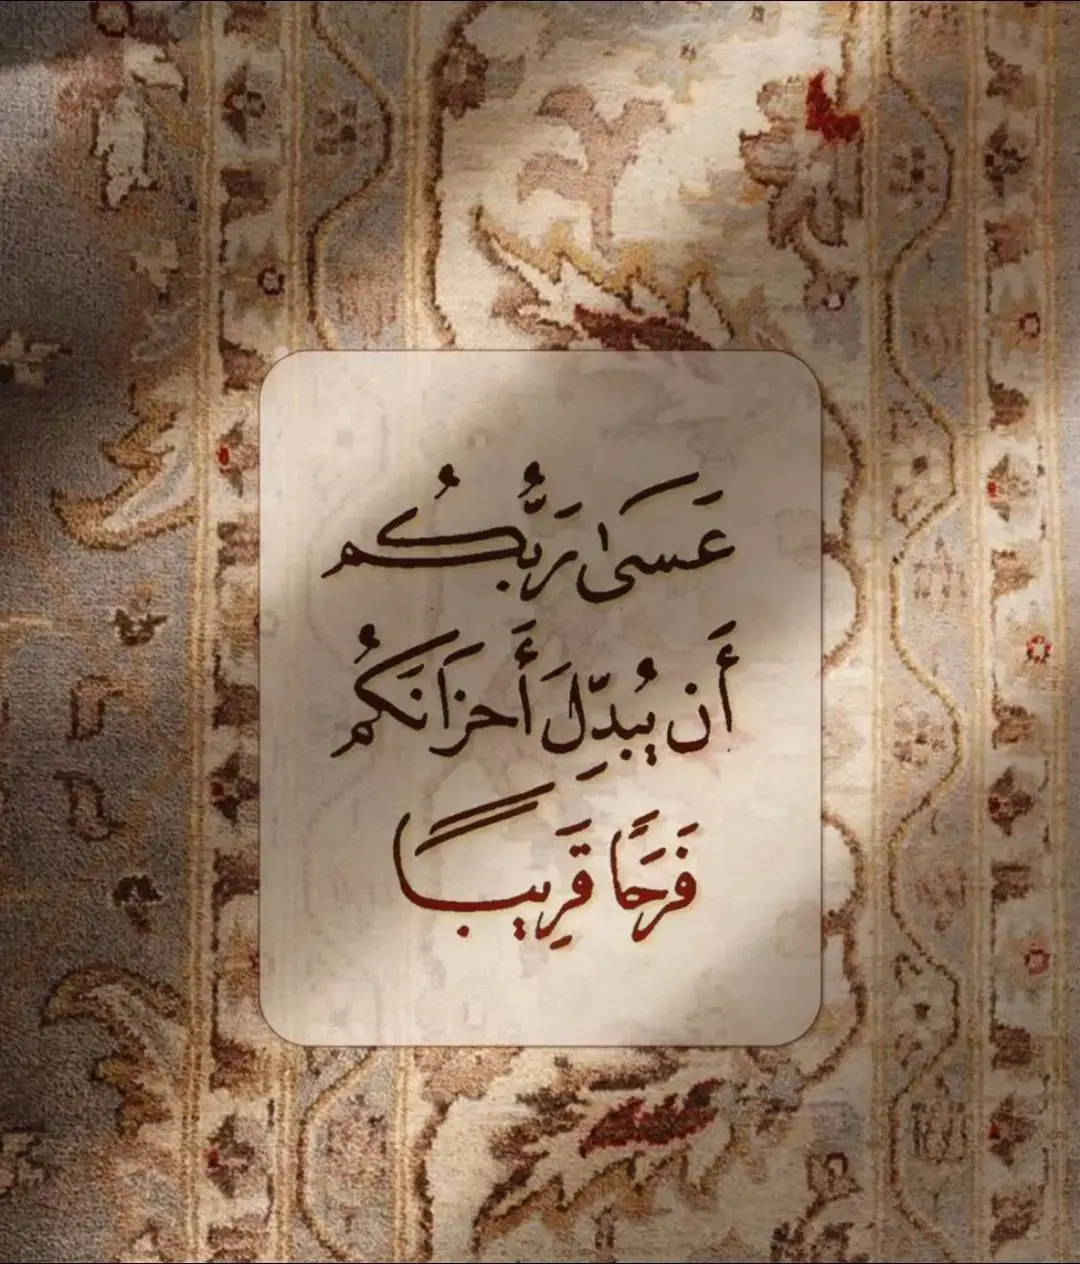 عَسَىٰ رَبُّكُم
أَن يُبدِّلَ أَحزَانَكُم
فَرَحًا قَرِيبًا